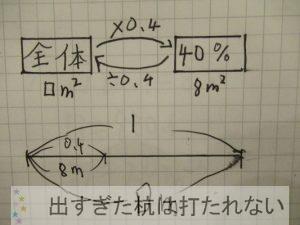 ×0.4
全体
40%
÷0.4
□m²
8m²
1
0.4
8m
□
出すぎた杭は打たれない